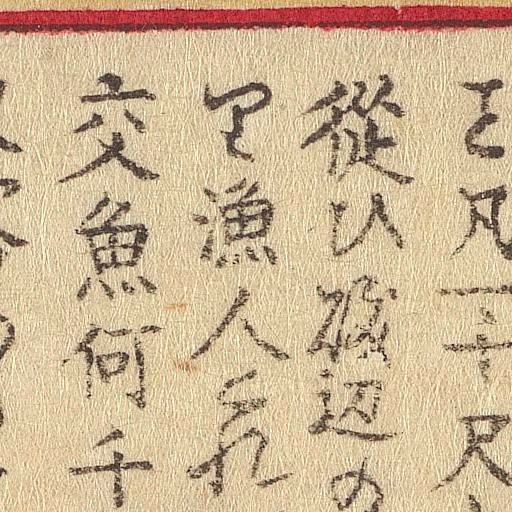 凡一千尺
從ひ磯辺の
里漁人これ
交魚何千